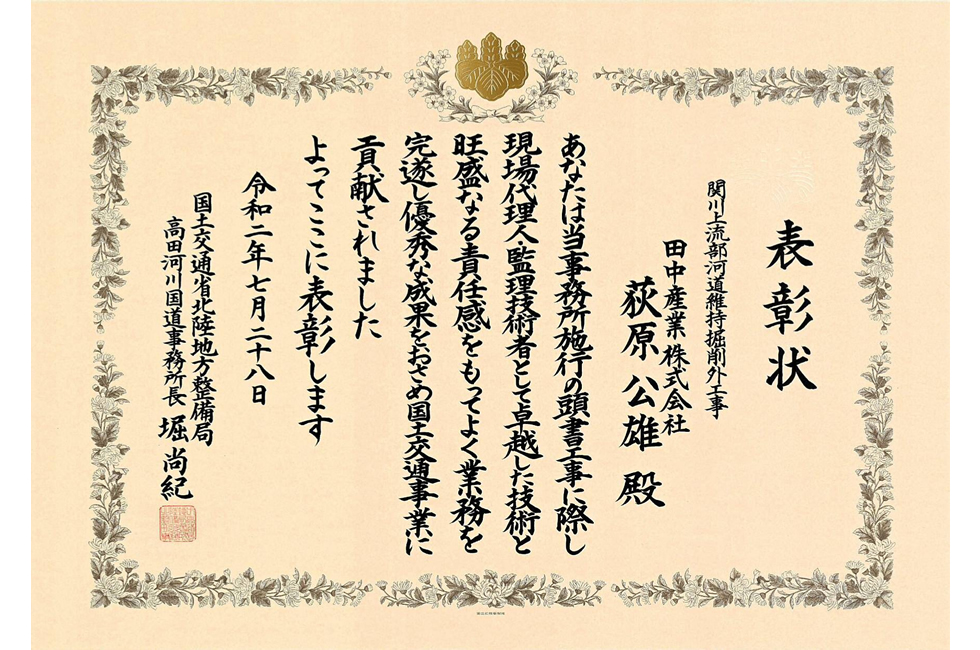 表彰状
関川上流部河道維持掘削外工事
田中産業株式会社
荻原公雄殿
あなたは当事務所施行の頭書工事に際し
現場代理人・監理技術者として卓越した技術と
旺盛なる責任感をもってよく業務を
完遂し優秀な成果をおさめ国土交通事業に
貢献されました
よってここに表彰します
令和二年七月二十八日
国土交通省北陸地方整備局
高田河川国道事務所長 堀尚紀